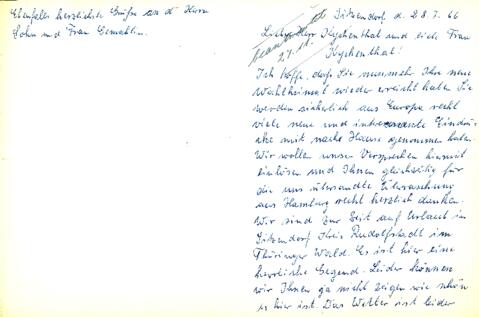 Ebenfalls herzlichste Grüße an d. Herrn
Sohn und Frau Gemahlin.
Sitzendorf, d. 28.7.66
Lieber Herr Kychenthal und liebe Frau
Kychenthal!
beantwortet
27.
Ich hoffe, daß Sie nunmehr Ihre neue
Wahlheimat wieder erreicht haben. Sie
werden sicherlich aus Europa recht
viele neue und interessante Eindrü-
cke mit nach Hause genommen haben.
Wir wollen unser Versprechen hiermit
einlösen und Ihnen gleichzeitig für
die uns übersandte Überraschung
aus Hamburg recht herzlich danken.
Wir sind zur Zeit auf Urlaub in
Sitzendorf Kreis Rudolfstadt im
Thüringer Wald. Es ist hier eine
herrliche Gegend. Leider können
wir Ihnen ja nicht zeigen wie schön
es hier ist. Das Wetter ist leider